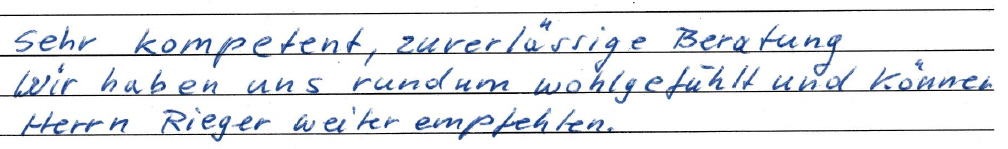 Sehr kompetent, zuverlässige Beratung
Wir haben uns rundum wohlgefühlt und können
Herrn Rieger weiter empfehlen.